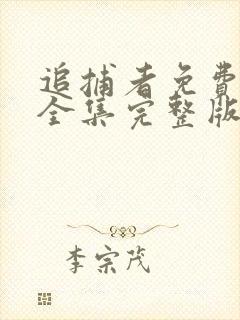 追捕者免費
全集完整版
李宗茂